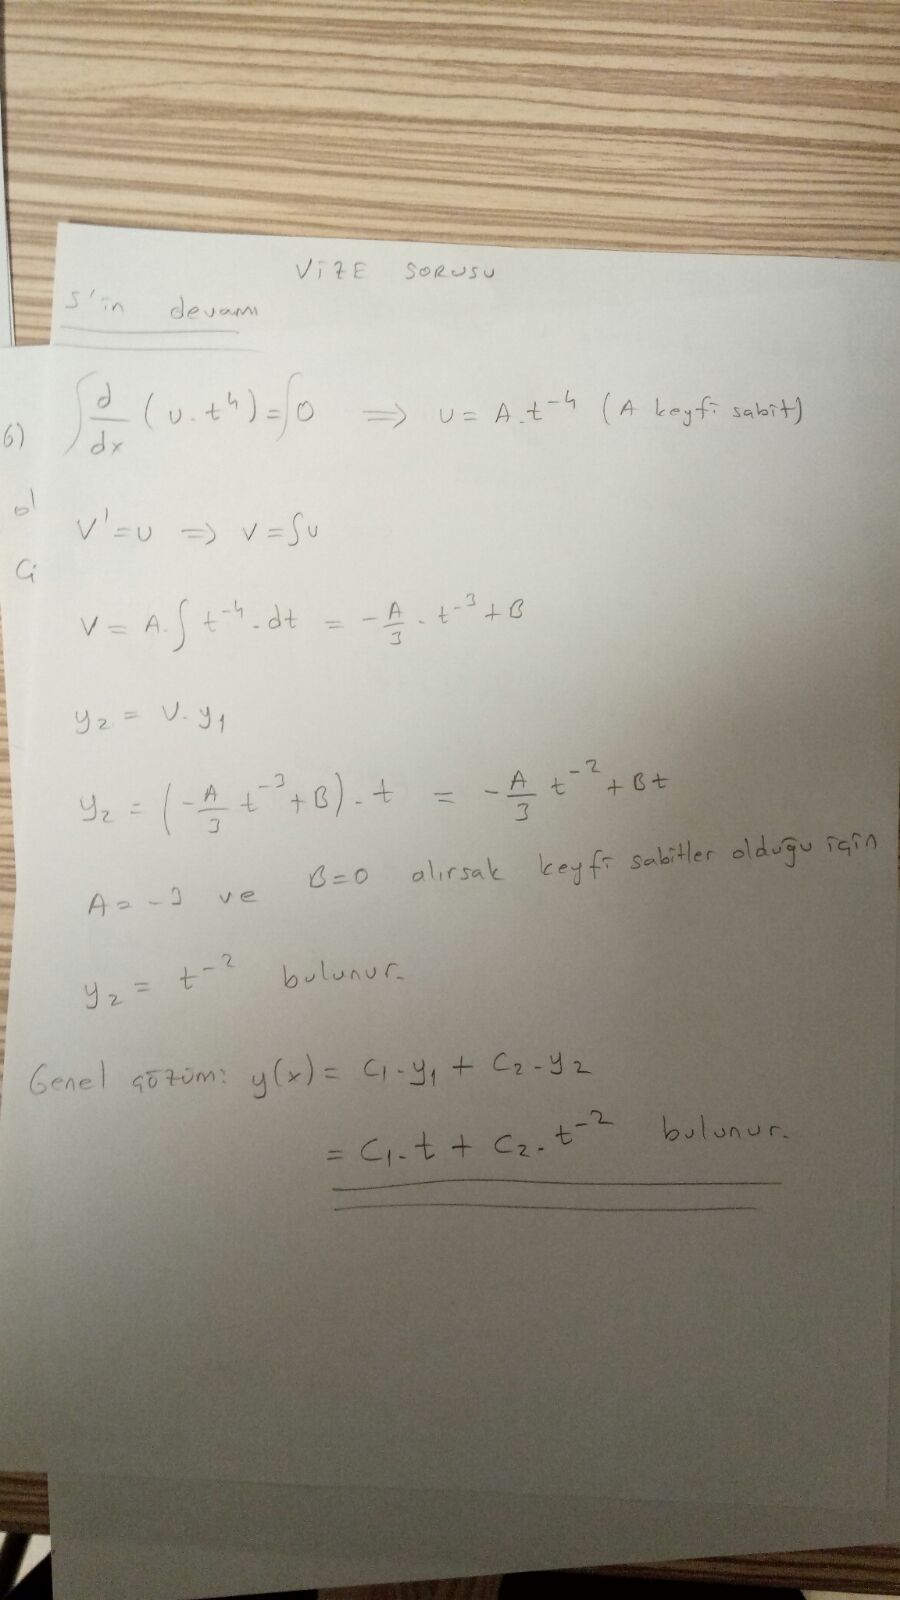 VİZE SORUSU
5'in devamı
∫ d/dx (u.t⁴) = ∫0 ⟹ u = A.t⁻⁴ (A keyfî sabît)
6)
V' = u ⟹ v = ∫u
V = A.∫ t⁻⁴.dt = -A/3 . t⁻³ + B
y₂ = V.y₁
y₂ = (-A/3 t⁻³ + B).t = -A/3 t⁻² + Bt
A = -3 ve B=0 alırsak keyfî sabitler olduğu için
y₂ = t⁻² bulunur.
Genel çözüm: y(x) = C₁.y₁ + C₂.y₂
= C₁.t + C₂.t⁻² bulunur.